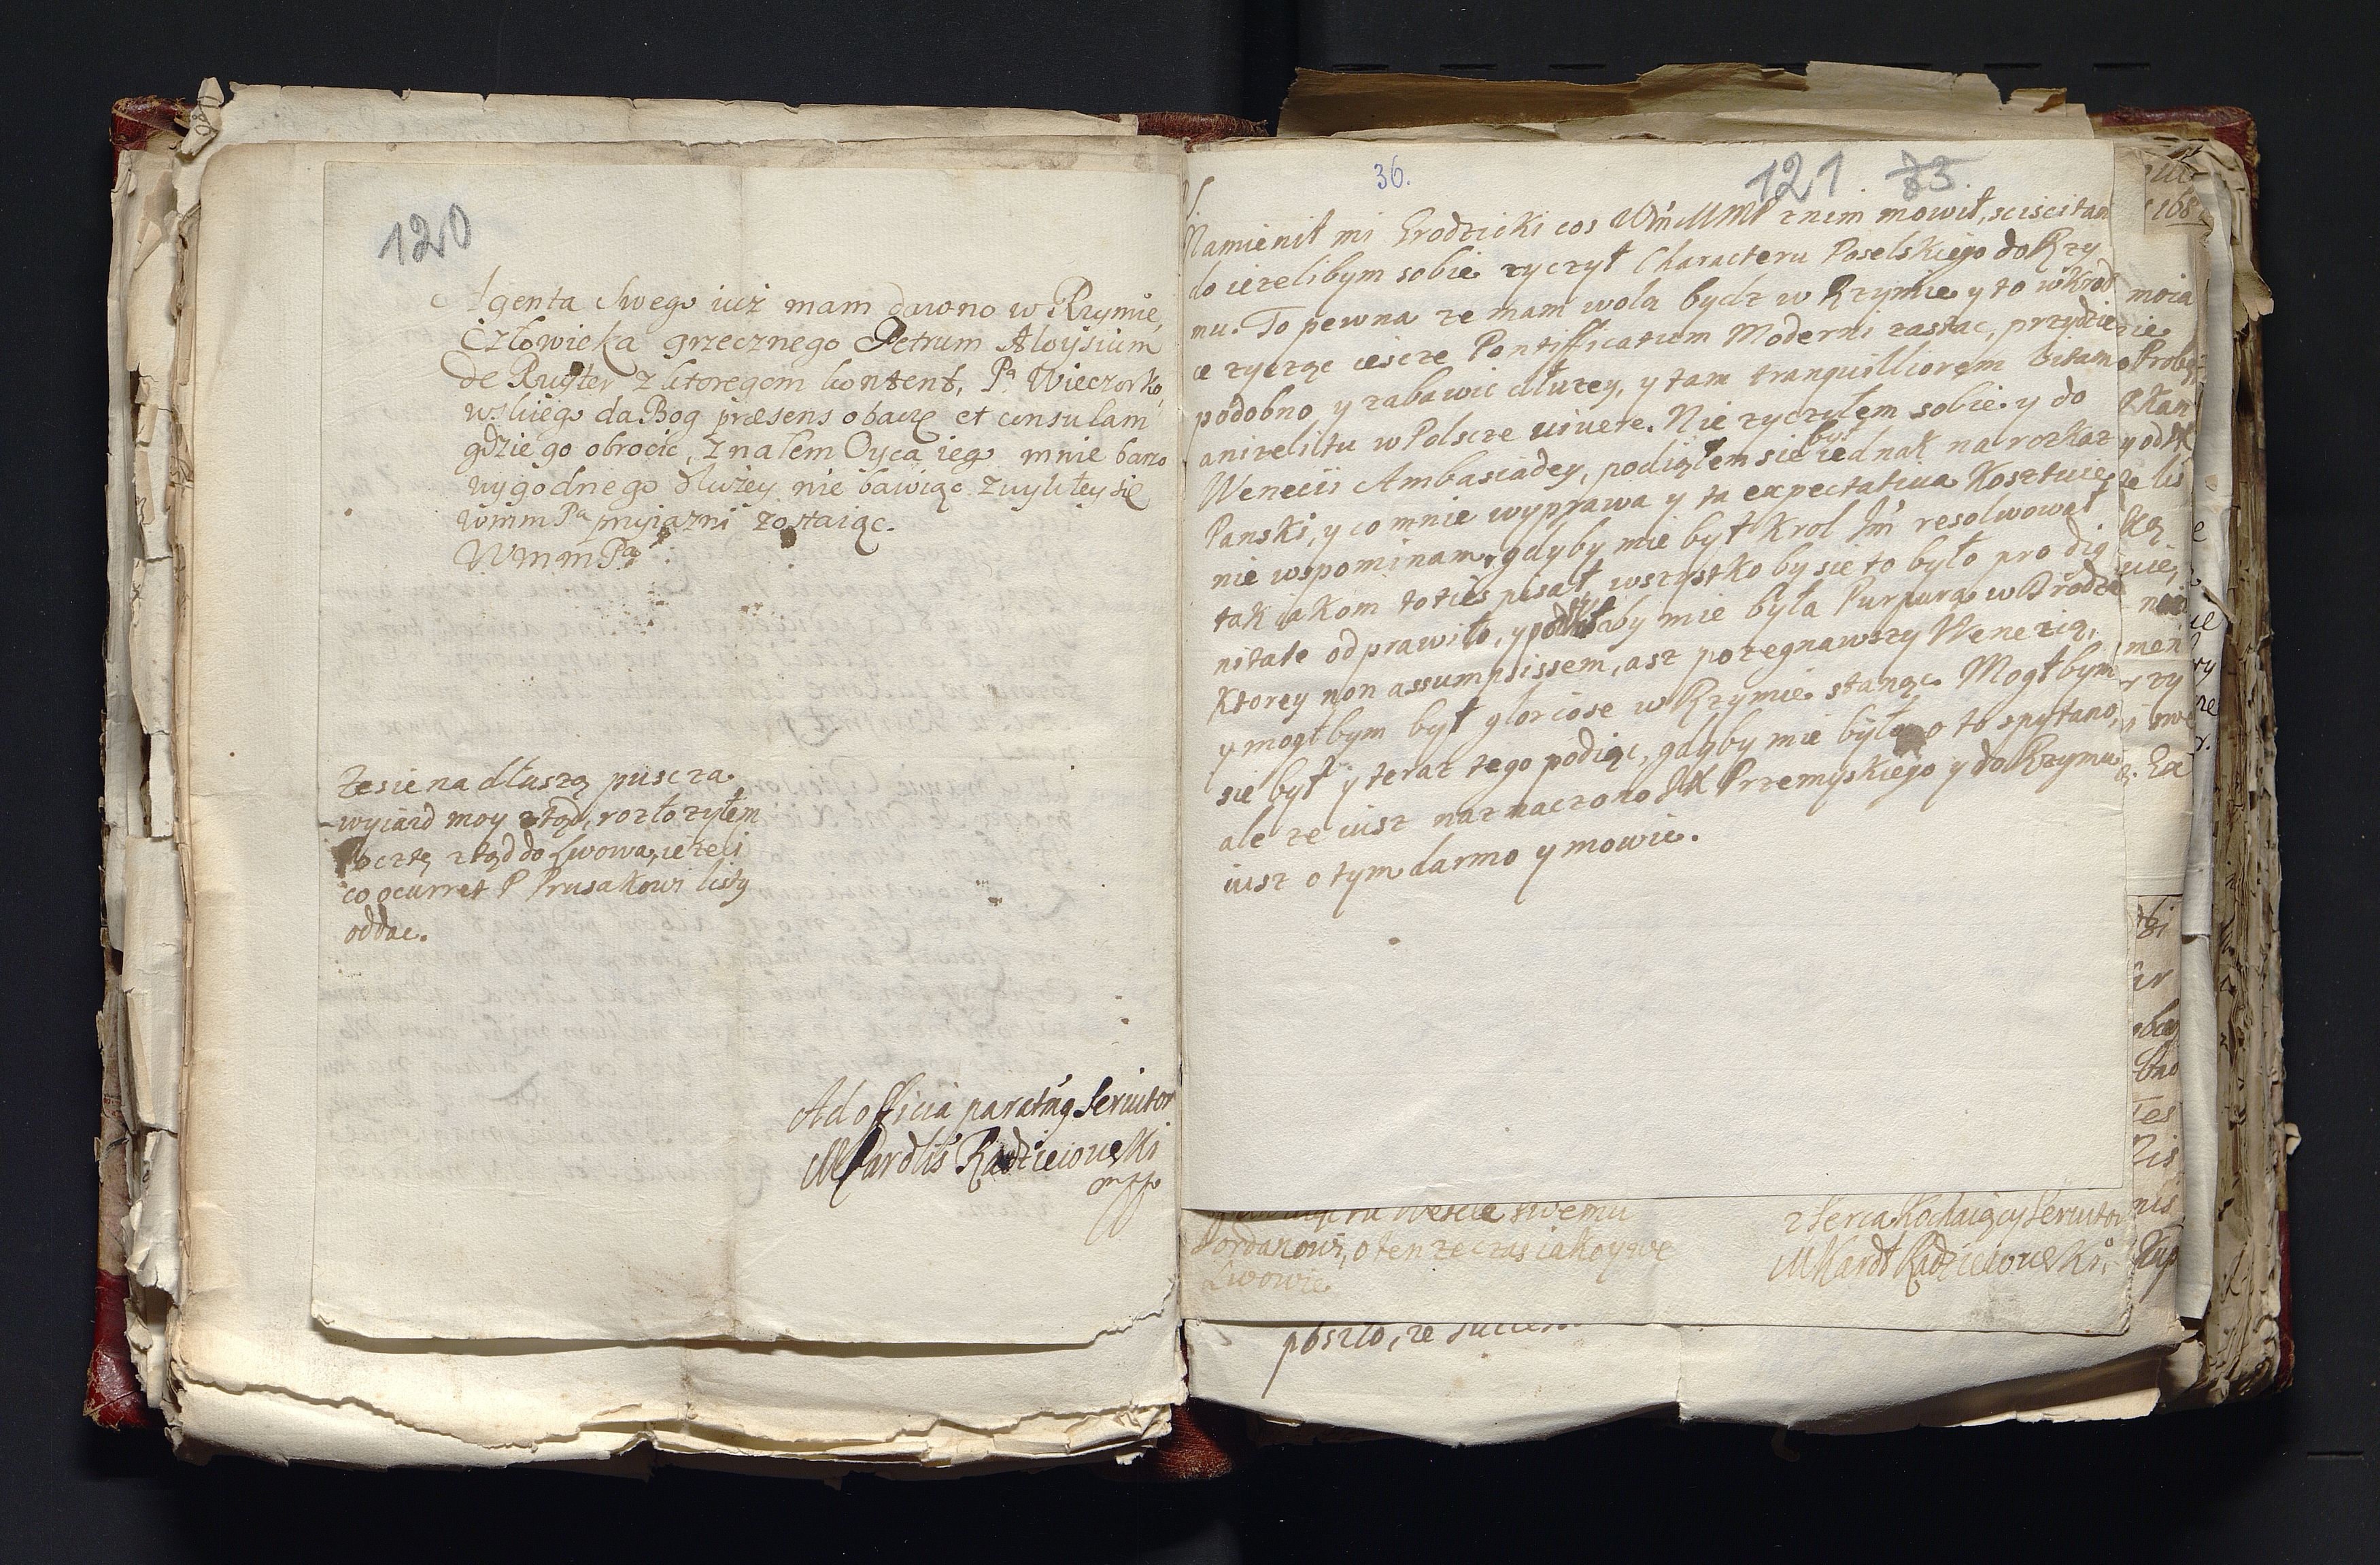 120
Agenta swego iuż mam dawno w Rzymie,
Człowieka grzecznego Petrum Aloysium
de Ruyter z ktoregom kontent, Pa Wieczorko,
wskiego da Bog præsens obaczę et consulam
gdzie go obrocic, znalem Oyca iego mnie barzo
wygodnego dłużey nie bawiąc zwykłey się
wmm Pa przyiazni zostaiąc.
WmmPa
Ze sie na dłuszą puscza
wyiazd moy ztąd, rozłozyłem
Pocztę ztąd do Lwowa, iezeli
co ocurret P Prusakowi listy
oddac.
Ad officia paratus seruitor
MCardlis Radzieiowski
mpp
36.
121 83
Namienił mi Grodzicki cos WmMMP z nim mowił, sciscitan
do iezelibym sobie zyczył Characteru Poselskiego do Rzy
mu. To pewna ze mam wola bydz w Rzymie y to wkrod
ce zycząc iescze Pontifficatum Moderni zastac, przydzie
podobno y zabawic dłuzey, y tam tranquilliorem vitam
anizeli tu w Polscze uiuere. Nie zyczyłem sobie y do
Wenecii Ambasciadey, podiąłem sie był iednak na rozkaz
Panski, y co mnie wyprawa y ta expectatiua kosztuie,
nie wspominam, gdyby mie był Krol Jm resolwował
tak iakom toties pisał, wszystko by sie to było pro dig
nitate odprawiło, y potkałaby mie była Purpura w Drodze
ktorey non assumpsissem, asz pozegnawszy Wenezią,
y mogłbym był gloriose w Rzymie stanąc. Mogłbym
sie był y teraz tego podiąc, gdyby mie było o to spytano,
ale ze iusz naznaczono JX Przemyskiego y do Rzymu
iusz o tym darmo y mowic.
swemu
Jordanowi, o ten ze czas iako y we
Lwowie
z serca kochaiący seruitor
MKardł Radzieiowski.
poszło, ze